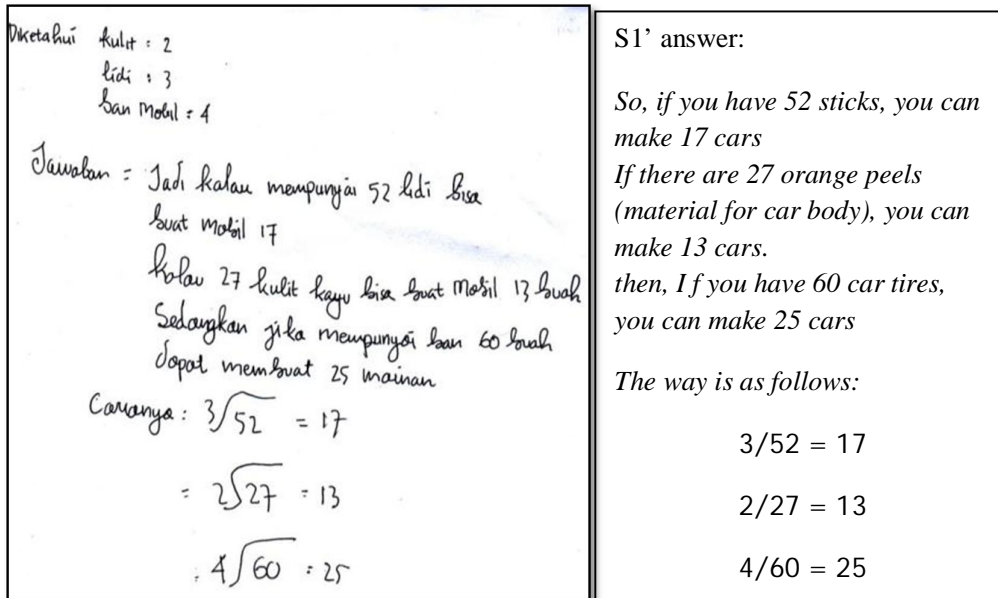 Diketahui kulit : 2
lidi : 3
ban mobil = 4
Jawaban = Jadi kalau mempunyai 52 lidi bisa
buat mobil 17
kalau 27 kulit kayu bisa buat mobil 13 buah
Sedangkan jika mempunyai ban 60 buah
dapat membuat 25 mainan
Caranya : 3√52 = 17
= 2√27 = 13
: 4√60 : 25
S1’ answer:
So, if you have 52 sticks, you can
make 17 cars
If there are 27 orange peels
(material for car body), you can
make 13 cars.
then, I f you have 60 car tires,
you can make 25 cars
The way is as follows:
3/52 = 17
2/27 = 13
4/60 = 25